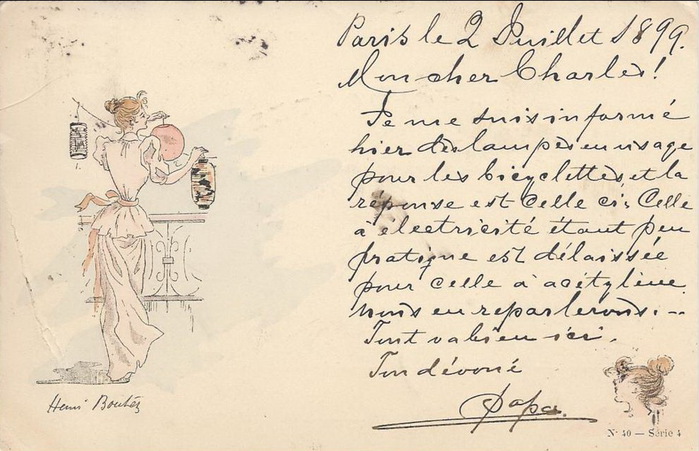 Paris le 2 Juillet 1899.
Mon cher Charles!
Je me suis informé
hier des lampes en usage
pour les bicyclettes et la
réponse est celle ci: Celle
à électricité étant peu
pratique est délaissée
pour celle à acétylène
nous en reparlerons. --
Tout va bien ici.
Ton dévoué
Papa.
Henri Boutet
N° 40 — Série 4